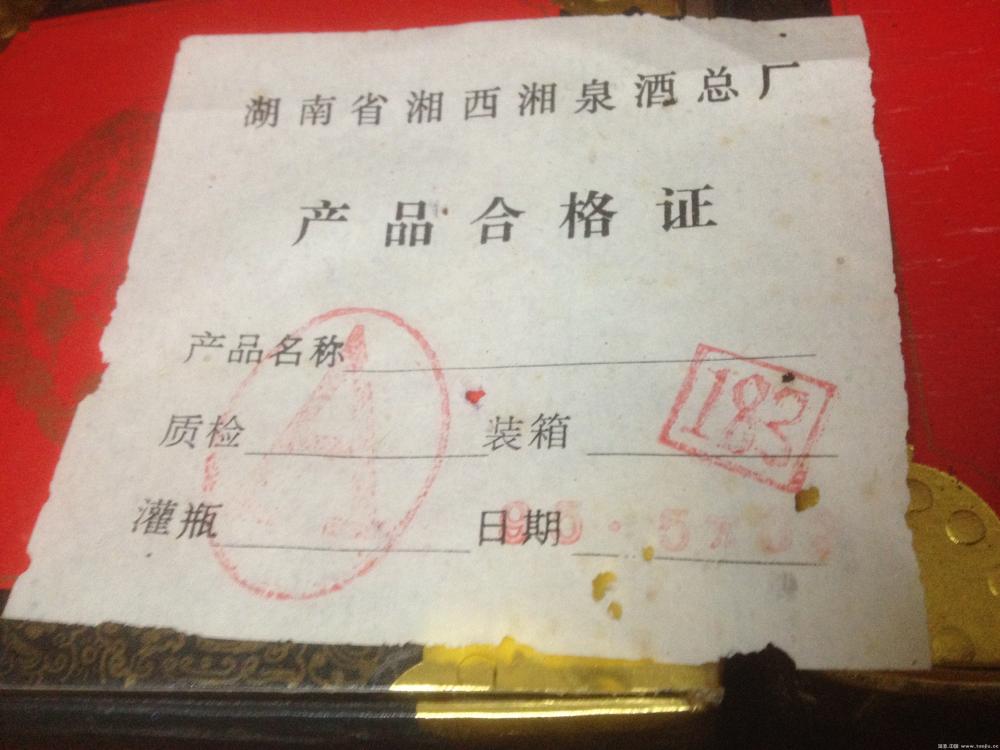 湖南省湘西湘泉酒总厂
产品合格证
产品名称
质检 装箱 183
灌瓶 日期 95·5
www.997788.com